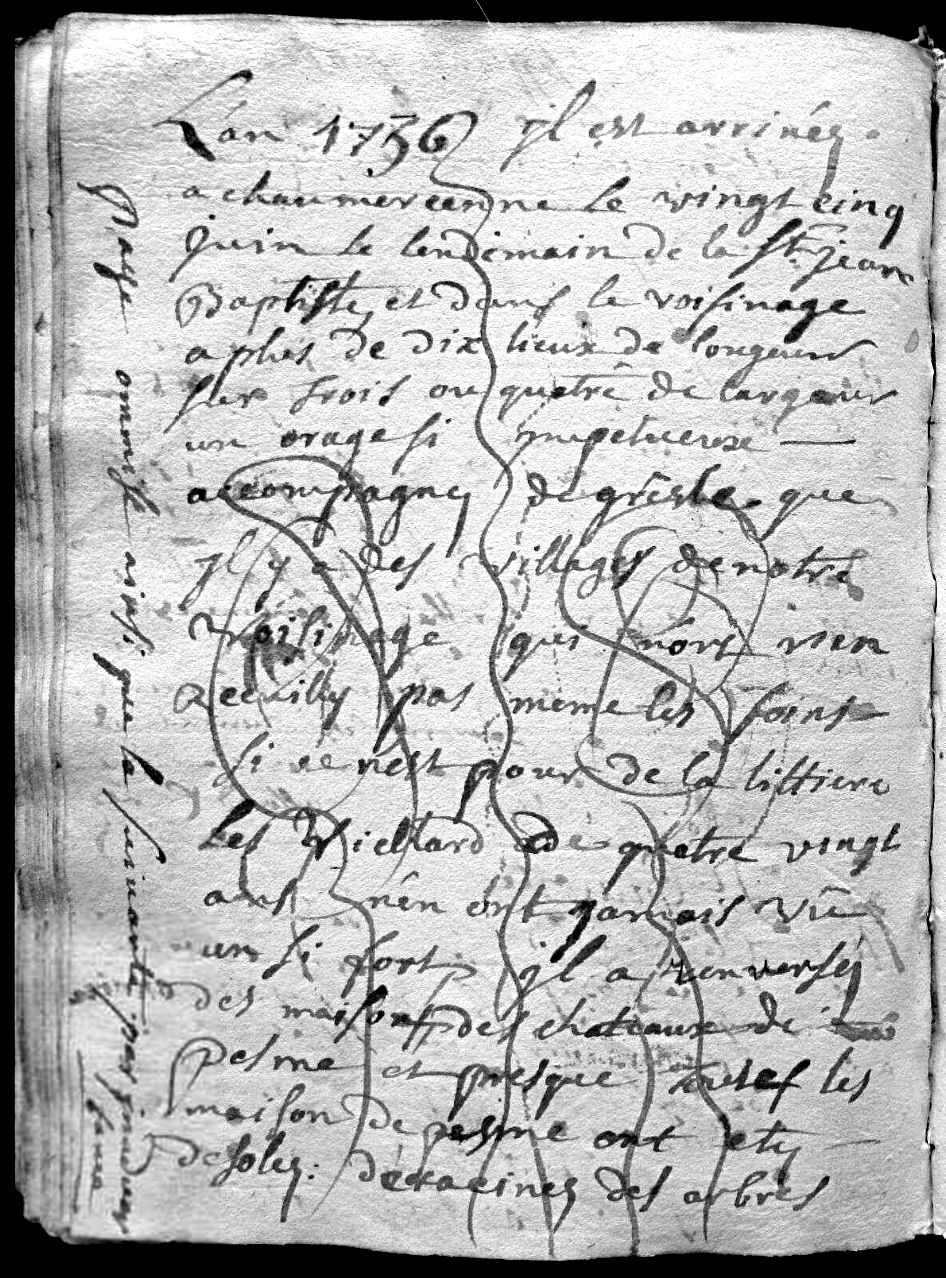 L'an 1736 jl est arrivéz
a chaumerceenne le vingt cinq
juin le lendemain de la st jean
Baptiste et dans le voisinage
a plus de dix lieux de longeur
sur trois ou quatre de largeur
un orage si impetueuse —
accompagnez de gresle que
jl y a des villages de notre
voisinage qui n'ont rien
recuilly pas meme les foins
si ce nest pour de la littiere
Les vieillard de quatre vingt
ans n'en ont jamais vû
un si fort jl a renverséz
des maisons des chateaux de
pesme et presque toutes les
maison de pesme ont etez
desolez: deracinez des arbres
Page omise ainsi que la suivante